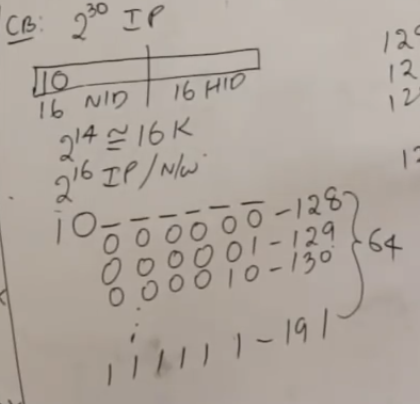 CB: 2^30 IP
10
16 NID 16 HID
2^14 ≅ 16 K
2^16 IP/N/W
10 _ _ _ _ _ _
0 0 0 0 0 0 - 128
0 0 0 0 0 1 - 129
0 0 0 0 1 0 - 130
64
⋮
1 1 1 1 1 1 - 191
129
12
12
12